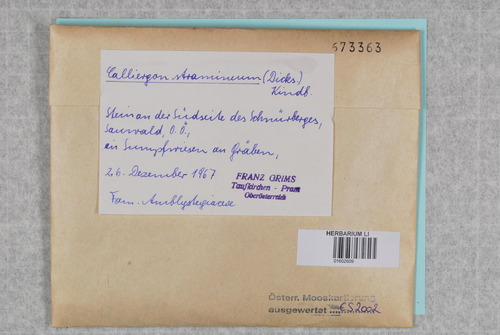 573363
Calliergon stramineum (Dicks.)
Kindb.
an der Südseite des
Sauwald, O.Ö.,
in Sumpfwiesen an Gräben,
26. Dezember 1967
FRANZ GRIMS
Taufkirchen - Pram
Oberösterreich
Fam. Amblystegiaceae
HERBARIUM LI
01602609
Österr. Mooskartierung
ausgewertet